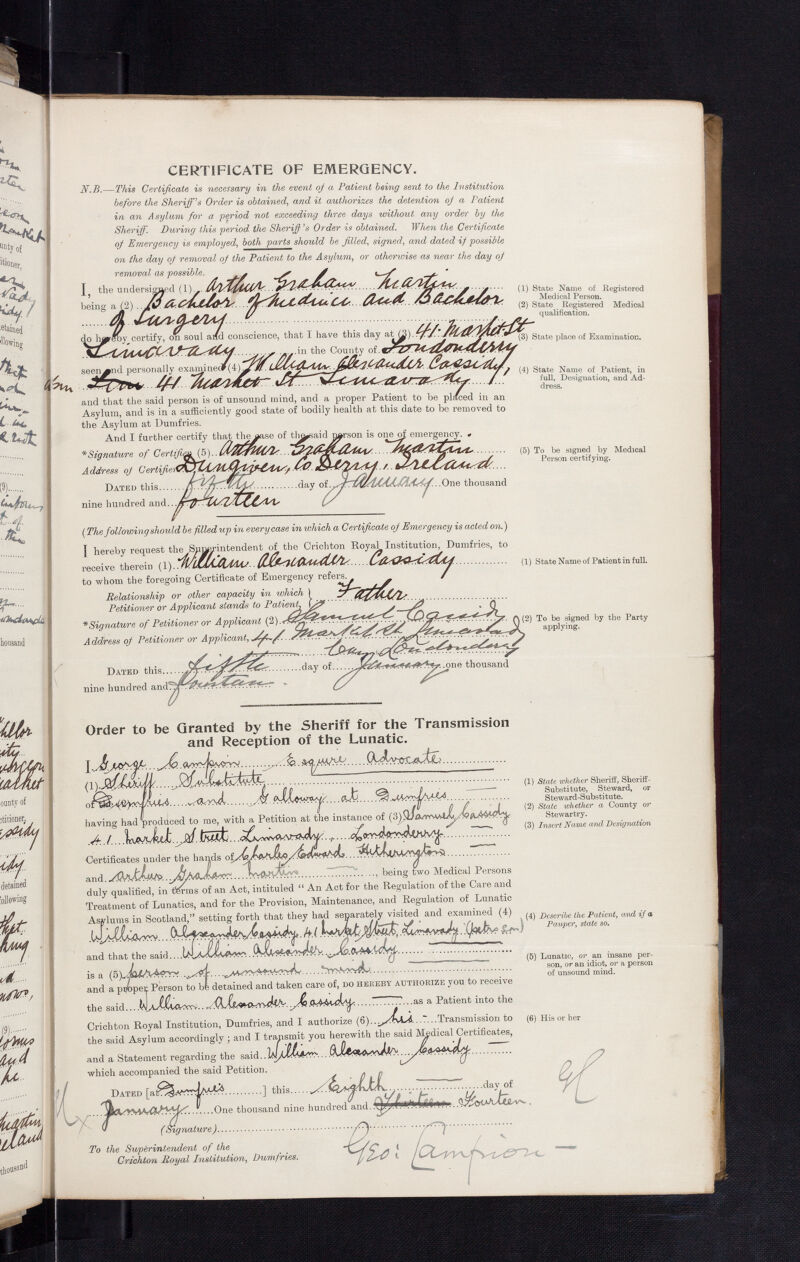 CERTIFICATE OF EMERGENCY.
N.B.—This Certificate is necessary in the event of a Patient being sent to the Institution
before the Sheriff's Order is obtained, and it authorizes the detention of a Patient
in an Asylum for a period not exceeding three days without any order by the
Sheriff. During this period the Sheriff's Order is obtained. When the Certificate
of Emergency is employed, both parts should be filled, signed, and dated if possible
on the day of removal of the Patient to the Asylum, or otherwise as near the day of
removal as possible.
I, the undersigned (1) Arthur Graham Martin
being a (2) Bachelor of Medicine and Bachelor
of Surgery
do hereby certify, on soul and conscience, that I have this day at (3) 41. Market St
Limavady in the County of Londonderry
seen and personally examined (4) William Alexander Cassidy,
41 Market St Limavady
and that the said person is of unsound mind, and a proper Patient to be placed in an
Asylum, and is in a sufficiently good state of bodily health at this date to be removed to
the Asylum at Dumfries.
And I further certify that the case of the said person is one of emergency.
*Signature of Certifier (5) Arthur Graham Martin
Address of Certifier Dungiven, Co Derry, Ireland
DATED this fifth day of January One thousand
nine hundred and fourteen
(1) State Name of Registered
Medical Person.
(2) State Registered Medical
qualification.
(3) State place of Examination.
(4) State Name of Patient, in
full, Designation, and Ad-
dress.
(5) To be signed by Medical
Person certifying.
(The following should be filled up in every case in which a Certificate of Emergency is acted on.)
I hereby request the Superintendent of the Crichton Royal Institution, Dumfries, to
receive therein (1) William Alexander Cassidy
to whom the foregoing Certificate of Emergency refers.
Relationship or other capacity in which } Father
Petitioner or Applicant stands to Patient,
*Signature of Petitioner or Applicant (2) Samuel Cassidy
Address of Petitioner or Applicant, 41 Market St Limavady
Londonderry
DATED this fifth day of January one thousand
nine hundred and
(1) State Name of Patient in full.
(2) To be signed by the Party
applying.
Order to be Granted by the Sheriff for the Transmission
and Reception of the Lunatic.
I George Campion Esquire Advocate
(1) Sheriff Substitute
of Dumfries and Galloway at Dumfries
having had produced to me, with a Petition at the instance of (3) Samuel Cassidy
41 Market Street Limavady, Londonderry
Certificates under the hands of Charles Edward Hetherington
and Arthur Graham Martin, being two Medical Persons
duly qualified, in terms of an Act, intituled “An Act for the Regulation of the Care and
Treatment of Lunatics, and for the Provision, Maintenance, and Regulation of Lunatic
Asylums in Scotland,” setting forth that they had separately visited and examined (4)
William Alexander Cassidy, 41 Market Street, Limavady
and that the said William Alexander Cassidy
is a (5) person of unsound mind
and a proper Person to be detained and taken care of, DO HEREBY AUTHORIZE you to receive
the said William Alexander Cassidy as a Patient into the
Crichton Royal Institution, Dumfries, and I authorize (6) his Transmission to
the said Asylum accordingly; and I transmit you herewith the said Medical Certificates,
and a Statement regarding the said William Alexander Cassidy
which accompanied the said Petition.
DATED [at Dumfries ] this Eighth day of
January One thousand nine hundred and Thirteen Fourteen.
(Signature)
Geo: Campion
To the Superintendent of the
Crichton Royal Institution, Dumfries.
(1) State whether Sheriff, Sheriff-
Substitute, Steward, or
Steward-Substitute.
(2) State whether a County or
Stewartry.
(3) Insert Name and Designation
(4) Describe the Patient, and if a
Pauper, state so.
(5) Lunatic, or an insane per-
son, or an idiot, or a person
of unsound mind.
(6) His or her
GC